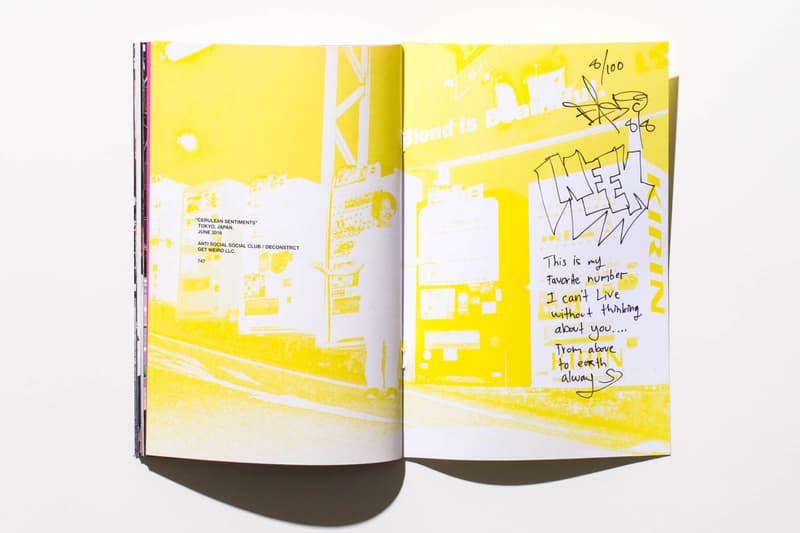 "CERULEAN SENTIMENTS"
TOKYO, JAPAN.
JUNE 2016
ANTI SOCIAL SOCIAL CLUB / DECONSTRCT
GET WEIRD LLC.
747
8/100
8/8
WEEK
Blend is Beautiful
KIRIN
This is my
Favorite number
I can't Live
without thinking
about you....
From above
to earth
always